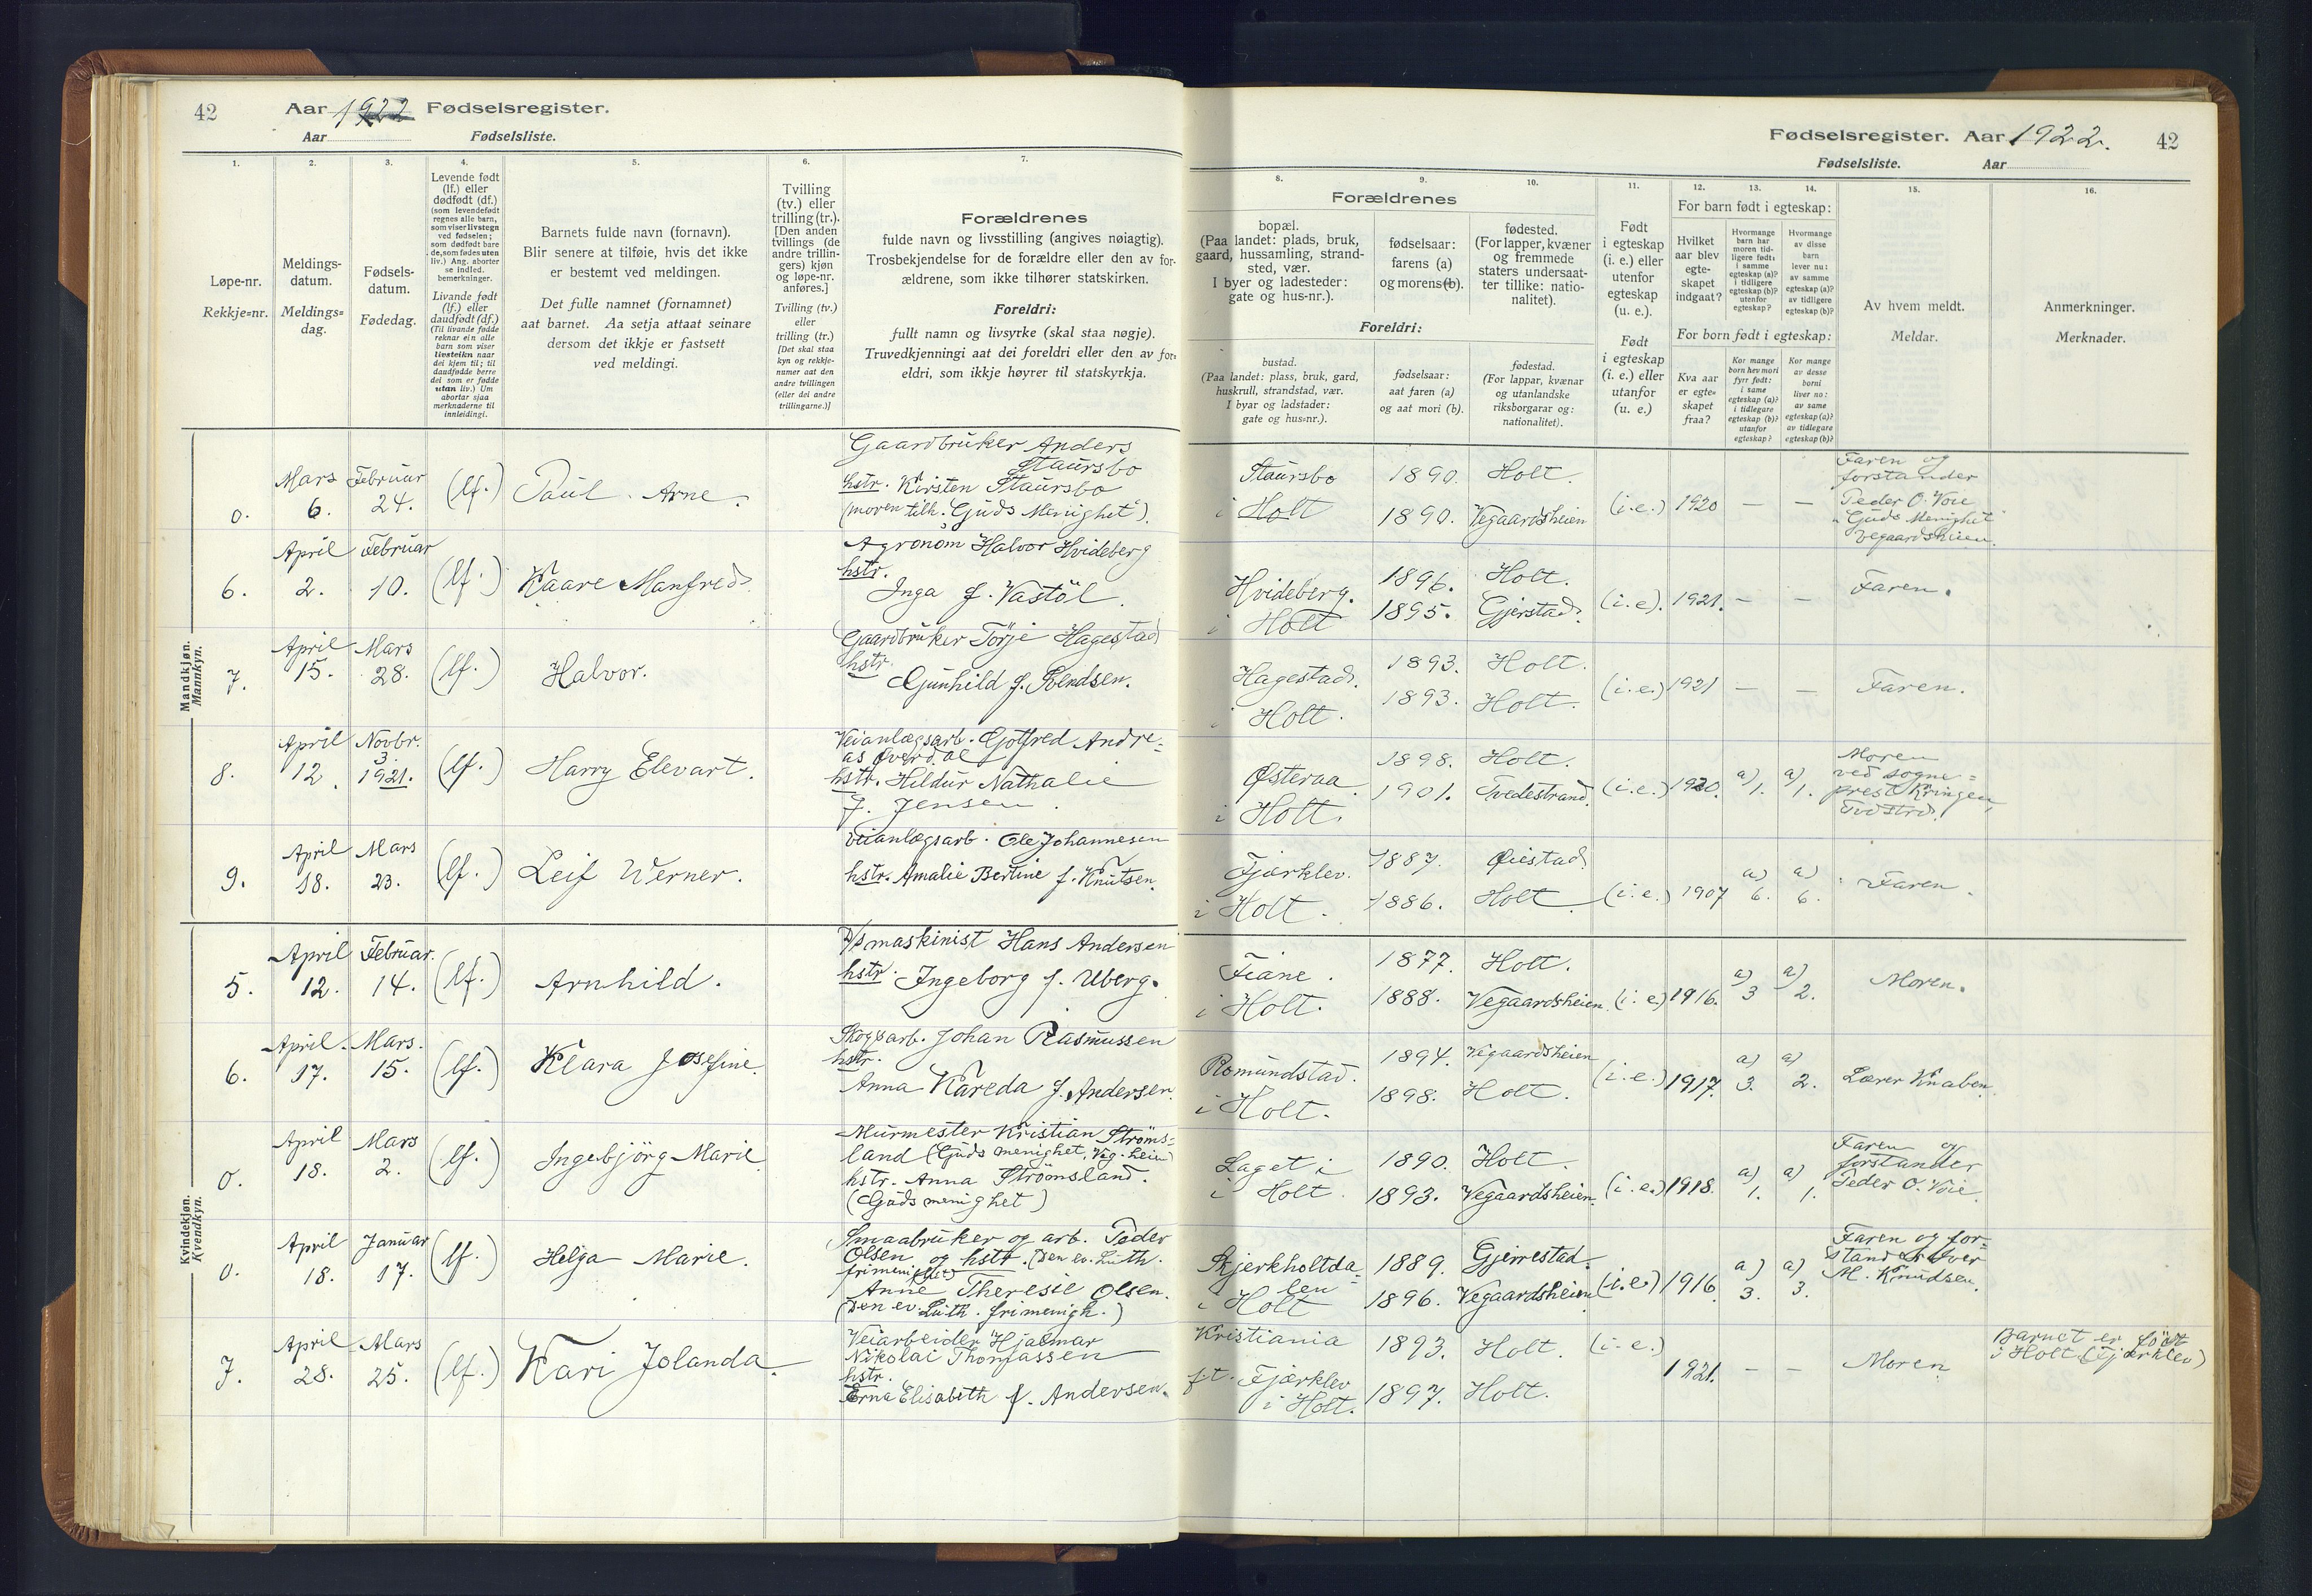 42
Aar 1922 Fødselsregister.
Aar Fødselsliste.
1.
2.
3.
4.
5.
6.
7.
Løpe-nr.
Rekkje-nr.
Meldings-
datum.
Meldings-
dag.
Fødsels-
datum.
Fødedag.
Levende født
(lf.) eller
dødfødt (df.)
(som levendefødt
regnes alle barn,
som viser livstegn
ved fødselen;
som dødfødt bare
de, som fødes uten
liv.) Ang. aborter
se indled.
bemerkninger.
Livande født
(lf.) eller
daudfødt (df.)
(Til livande fødde
reknar ein alle
barn som viser
livsteikn naar
dei kjem til; til
daudfødde berre
dei som er fødde
utan liv.) Um
abortar sjaa
merknaderne til
innleidingi.
Barnets fulde navn (fornavn).
Blir senere at tilføie, hvis det ikke
er bestemt ved meldingen.
Det fulle namnet (fornamnet)
aat barnet. Aa setja attaat seinare
dersom det ikkje er fastsett
ved meldingi.
Tvilling
(tv.) eller
trilling (tr.).
[Den anden
tvillings (de
andre trillin-
gers) kjøn
og løpe-nr.
anføres.]
Tvilling (tv.)
eller
trilling (tr.)
[Det skal staa
kyn og rekkje-
numer aat den
andre tvillingen
(eller dei andre
trillingarne.)]
Forældrenes
fulde navn og livsstilling (angives nøiagtig).
Trosbekjendelse for de forældre eller den av for-
ældrene, som ikke tilhører statskirken.
Foreldri:
fullt namn og livsyrke (skal staa nøgje).
Truvedkjenningi aat dei foreldri eller den av for-
eldri, som ikkje høyrer til statskyrkja.
Fødselsregister. Aar 1922. 42
Fødselsliste. Aar
8.
9.
10.
11.
12.
13.
14.
15.
16.
Forældrenes
bopæl.
(Paa landet: plads, bruk,
gaard, hussamling, strand-
sted, vær.
I byer og ladesteder:
gate og hus-nr.).
fødselsaar:
farens (a)
og morens (b).
fødested.
(For lapper, kvæner
og fremmede
staters undersaat-
ter tillike: natio-
nalitet).
Foreldri:
bustad.
(Paa landet: plass, bruk, gard,
huskrull, strandstad, vær.
I byar og ladstader:
gate og hus-nr.).
fødselsaar:
aat faren (a)
og aat mori (b).
fødestad.
(For lappar, kvænar
og utanlandske
riksborgarar og:
nationalitet).
Født
i egteskap
(i. e.) eller
utenfor
egteskap
(u. e.).
Født
i egteskap
(i. e.) eller
utanfor
(u. e.).
For barn født i egteskap:
Hvilket
aar blev
egte-
skapet
indgaat?
Hvormange
barn har
moren tid-
ligere født:
i samme
egteskap (a)?
i tidligere
egteskap (b)?
utenfor
egteskap?
Hvormange
av disse
barn
lever nu:
av samme
egteskap (a)?
av tidligere
egteskap (b)?
For born født i egteskap:
Kva aar
er egte-
skapet
fraa?
Kor mange
born hev mori
fyrr født:
i same
egteskap (a)?
i tidlegare
egteskap (b)?
utanfor
egteskap?
Kor mange
av desse
borni
liver no:
av same
egteskap (a)?
av tidlegare
egteskap (b)?
Av hvem meldt.
Meldar.
Anmerkninger.
Merknader.
Mandkjøn.
Mannkyn.
0. Mars 6. Februar 24. (lf.) Paul Arne.
Gaardbruker Anders
Staursbo
hstr. Kirsten Staursbo
(moren tilh. "Guds Menighet").
Staursbo
i Holt
1890. Holt.
1890. Vegaardsheien
(i.e.) 1920 — —
Faren og
forstander
Peder O. Voie
"Guds Menighet"
Vegaardsheien.
6. April 2. Februar 10. (lf.) Kaare Manfred.
Agronom Halvor Hvideberg
hstr.
Inga f. Vastøl.
Hvideberg.
i Holt
1896. Holt.
1895. Gjerstad.
(i.e). 1921. — — Faren.
7. April 15. Mars 28. (lf.) Halvor.
Gaardbruker Torje Hagestad
hstr.
Gunhild f. Svendsen.
Hagestad.
i Holt.
1893. Holt.
1893. Holt.
(i.e.) 1921 — — Faren.
8. April 12. Novbr. 3. 1921. (lf.) Harry Elevart.
Veianlægsarb. Gotfred Andre-
as Øverdal
hstr. Hildur Nathalie
f. Jensen.
Østeraa
i Holt.
1898. Holt.
1901. Tvedestrand.
(i.e.) 1920. a) 1. a) 1.
Moren
ved sogne-
prest Kringen
Tvdstrd.
9. April 18. Mars 23. (lf.) Leif Werner.
Veianlægsarb. Ole Johannesen
hstr. Amalie Bertine f. Knutsen.
Fjærklev.
i Holt.
1887. Øiestad
1886. Holt
(i.e.) 1907 a) 6. a) 6. Faren.
Kvindekjøn.
Kvendkyn.
5. April 12. Februar. 14. (lf.) Arnhild.
D/s maskinist Hans Andersen
hstr. Ingeborg f. Uberg.
Fiane.
i Holt.
1877. Holt.
1888. Vegaardsheien
(i.e.) 1916. a) 3 a) 2. Moren.
6. April 17. Mars. 15. (lf.) Klara Josefine.
Skogsarb. Johan Rasmussen
hstr.
Anna Kareda f. Andersen.
Romundstad.
i Holt.
1894. Vegaardsheien
1898. Holt.
(i.e.) 1917. a) 3. a) 2. Lærer Knaben.
0. April 18. Mars 2. (lf.) Ingebjörg Marie
Murmester Kristian Ströms-
land (Guds menighet, Veg.heien)
hstr. Anna Strömsland.
(Guds menighet)
Laget i
i Holt.
1890. Holt.
1893. Vegaardsheien.
(i.e.) 1918. a) 1. a) 1.
Faren og
forstander
Peder O. Voie.
0. April 18. Januar 17. (lf.) Helga Marie.
Smaabruker og arb. Peder
Olsen og hstr. (Den ev. Luth.
frimenighet)
Anne Theresie Olsen.
(Den ev. Luth. frimenigh.)
Bjerkholtda-
len
i Holt
1889. Gjerrestad.
1896. Vegaardsheien
(i.e.) 1916. a) 3. a) 3.
Faren og for-
stander Iver
M. Knudsen.
7. April 28. Mars 25. (lf.) Kari Jolanda.
Veiarbeider Hjalmar
Nikolai Thomassen
hstr.
Erna Elisabeth f. Andersen.
Kristiania
f.t. Fjærklev
i Holt.
1893. Holt.
1897. Holt.
(i.e.) 1921. — — Moren
Barnet er født
i Holt (Fjærklev)